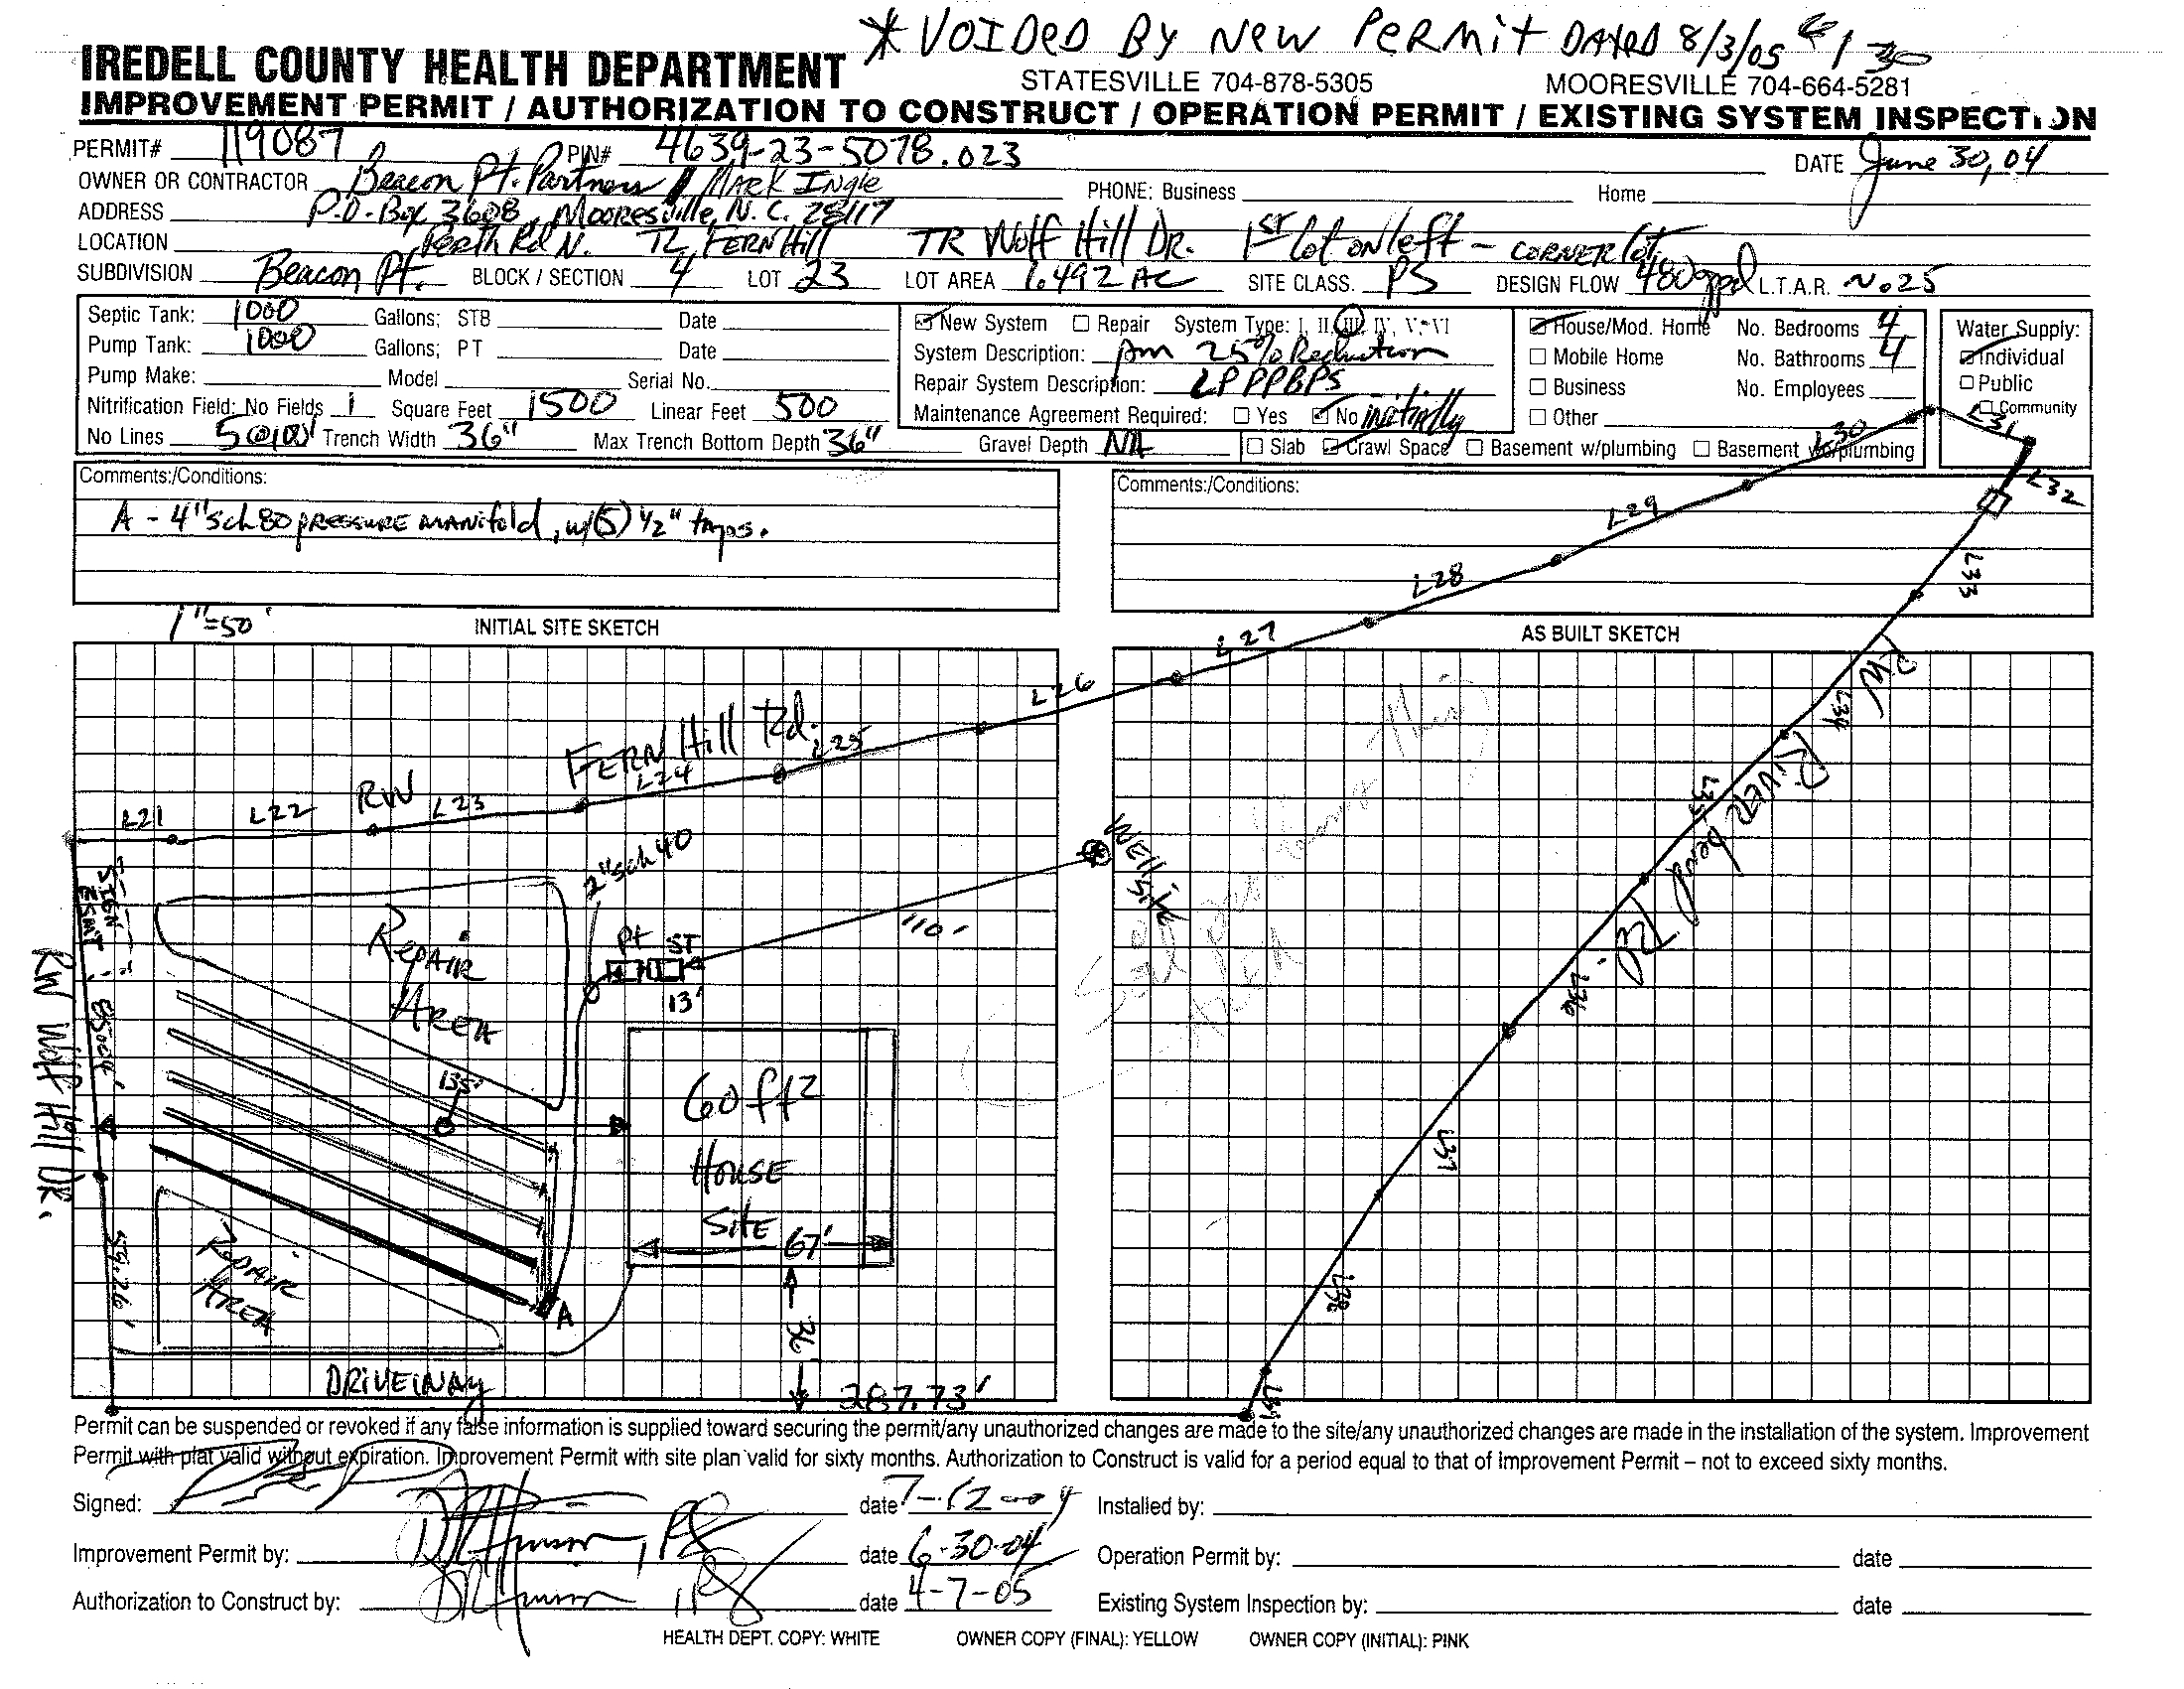 * VOIDED BY NEW PERMIT DATED 8/3/05
IREDELL COUNTY HEALTH DEPARTMENT
STATESVILLE 704-878-5305 MOORESVILLE 704-664-5281
IMPROVEMENT PERMIT / AUTHORIZATION TO CONSTRUCT / OPERATION PERMIT / EXISTING SYSTEM INSPECTION
PERMIT# 119087 PIN# 4639-23-5078.023 DATE June 30, 04
OWNER OR CONTRACTOR Beacon Pt. Partners / MARK Ingle PHONE: Business Home
ADDRESS P.O. Box 3608, Mooresville, N.C. 28117
LOCATION Perth Rd N. TL FERN Hill TR Wolf Hill DR. 1ST lot on left - CORNER lot.
SUBDIVISION Beacon Pt. BLOCK / SECTION 4 LOT 23 LOT AREA 1.492 AC SITE CLASS. PS DESIGN FLOW 480gpd L.T.A.R. ~.025
Septic Tank: 1000 Gallons; STB Date
Pump Tank: 1000 Gallons; PT Date
Pump Make: Model Serial No.
Nitrification Field: No Fields 1 Square Feet 1500 Linear Feet 500
No Lines 5@100' Trench Width 36" Max Trench Bottom Depth 36" Gravel Depth NA
New System Repair System Type: I, II, III, IV, V, VI
System Description: pm 25% Reduction
Repair System Description: LPPPBPS
Maintenance Agreement Required: Yes No initially
House/Mod. Home No. Bedrooms 4
Mobile Home No. Bathrooms 4
Business No. Employees
Other
Slab Crawl Space Basement w/plumbing Basement wo/plumbing
Water Supply:
Individual
Public
Community
Comments:/Conditions:
A - 4" sch 80 pressure manifold, w/(5) 1/2" taps.
Comments:/Conditions:
1"=50'
INITIAL SITE SKETCH
AS BUILT SKETCH
L21 L22 RW L23 FERN Hill Rd. L24 L25 L26 L27 L28 L29 L30 L31 L32
L33
RW
L34
RIVER bend Rd.
L35
L36
L37
L38
L39
SIGN ESMT
RW Wolf Hill DR.
59.26'
REPAIR AREA
2" sch 40
Pt ST
13'
110'
Well site
135'
60 ft2
HOUSE
SITE
67'
36
REPAIR AREA
A
DRIVEWAY
287.73'
Permit can be suspended or revoked if any false information is supplied toward securing the permit/any unauthorized changes are made to the site/any unauthorized changes are made in the installation of the system. Improvement
Permit with plat valid without expiration. Improvement Permit with site plan valid for sixty months. Authorization to Construct is valid for a period equal to that of Improvement Permit – not to exceed sixty months.
Signed: date 7-12-04 Installed by:
Improvement Permit by: date 6-30-04 Operation Permit by: date
Authorization to Construct by: date 4-7-05 Existing System Inspection by: date
HEALTH DEPT. COPY: WHITE OWNER COPY (FINAL): YELLOW OWNER COPY (INITIAL): PINK